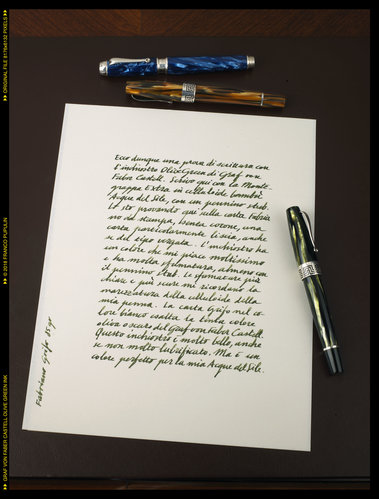 ORIGINAL FILE 8176x6132 PIXELS
© 2019 FRANCO PUPULIN
GRAF VON FABER CASTELL OLIVE GREEN INK
Ecco dunque una prova di scrittura con
l'inchiostro Olive Green di Graf von
Faber Castell. Scrivo qui con la Monte-
grappa Extra in celluloide bambù
Acque del Sile, con un pennino stub.
Lo sto provando qui sulla carta Fabria-
no da stampa, senza cotone, una
carta particolarmente liscia, anche
se del tipo vergata. L'inchiostro ha
un colore che mi piace moltissimo
e ha molta sfumatura, almeno con
il pennino stub. Le sfumature più
chiare e più scure mi ricordano la
marezzatura della celluloide della
mia penna. La carta Grifo nel co-
lore bianco esalta la tinta colore
oliva oscuro del Graf von Faber Castell.
Questo inchiostro è molto bello, anche
se non molto lubrificato. Ma è un
colore perfetto per la mia Acque del Sile.
Fabriano Grifo 85 gr